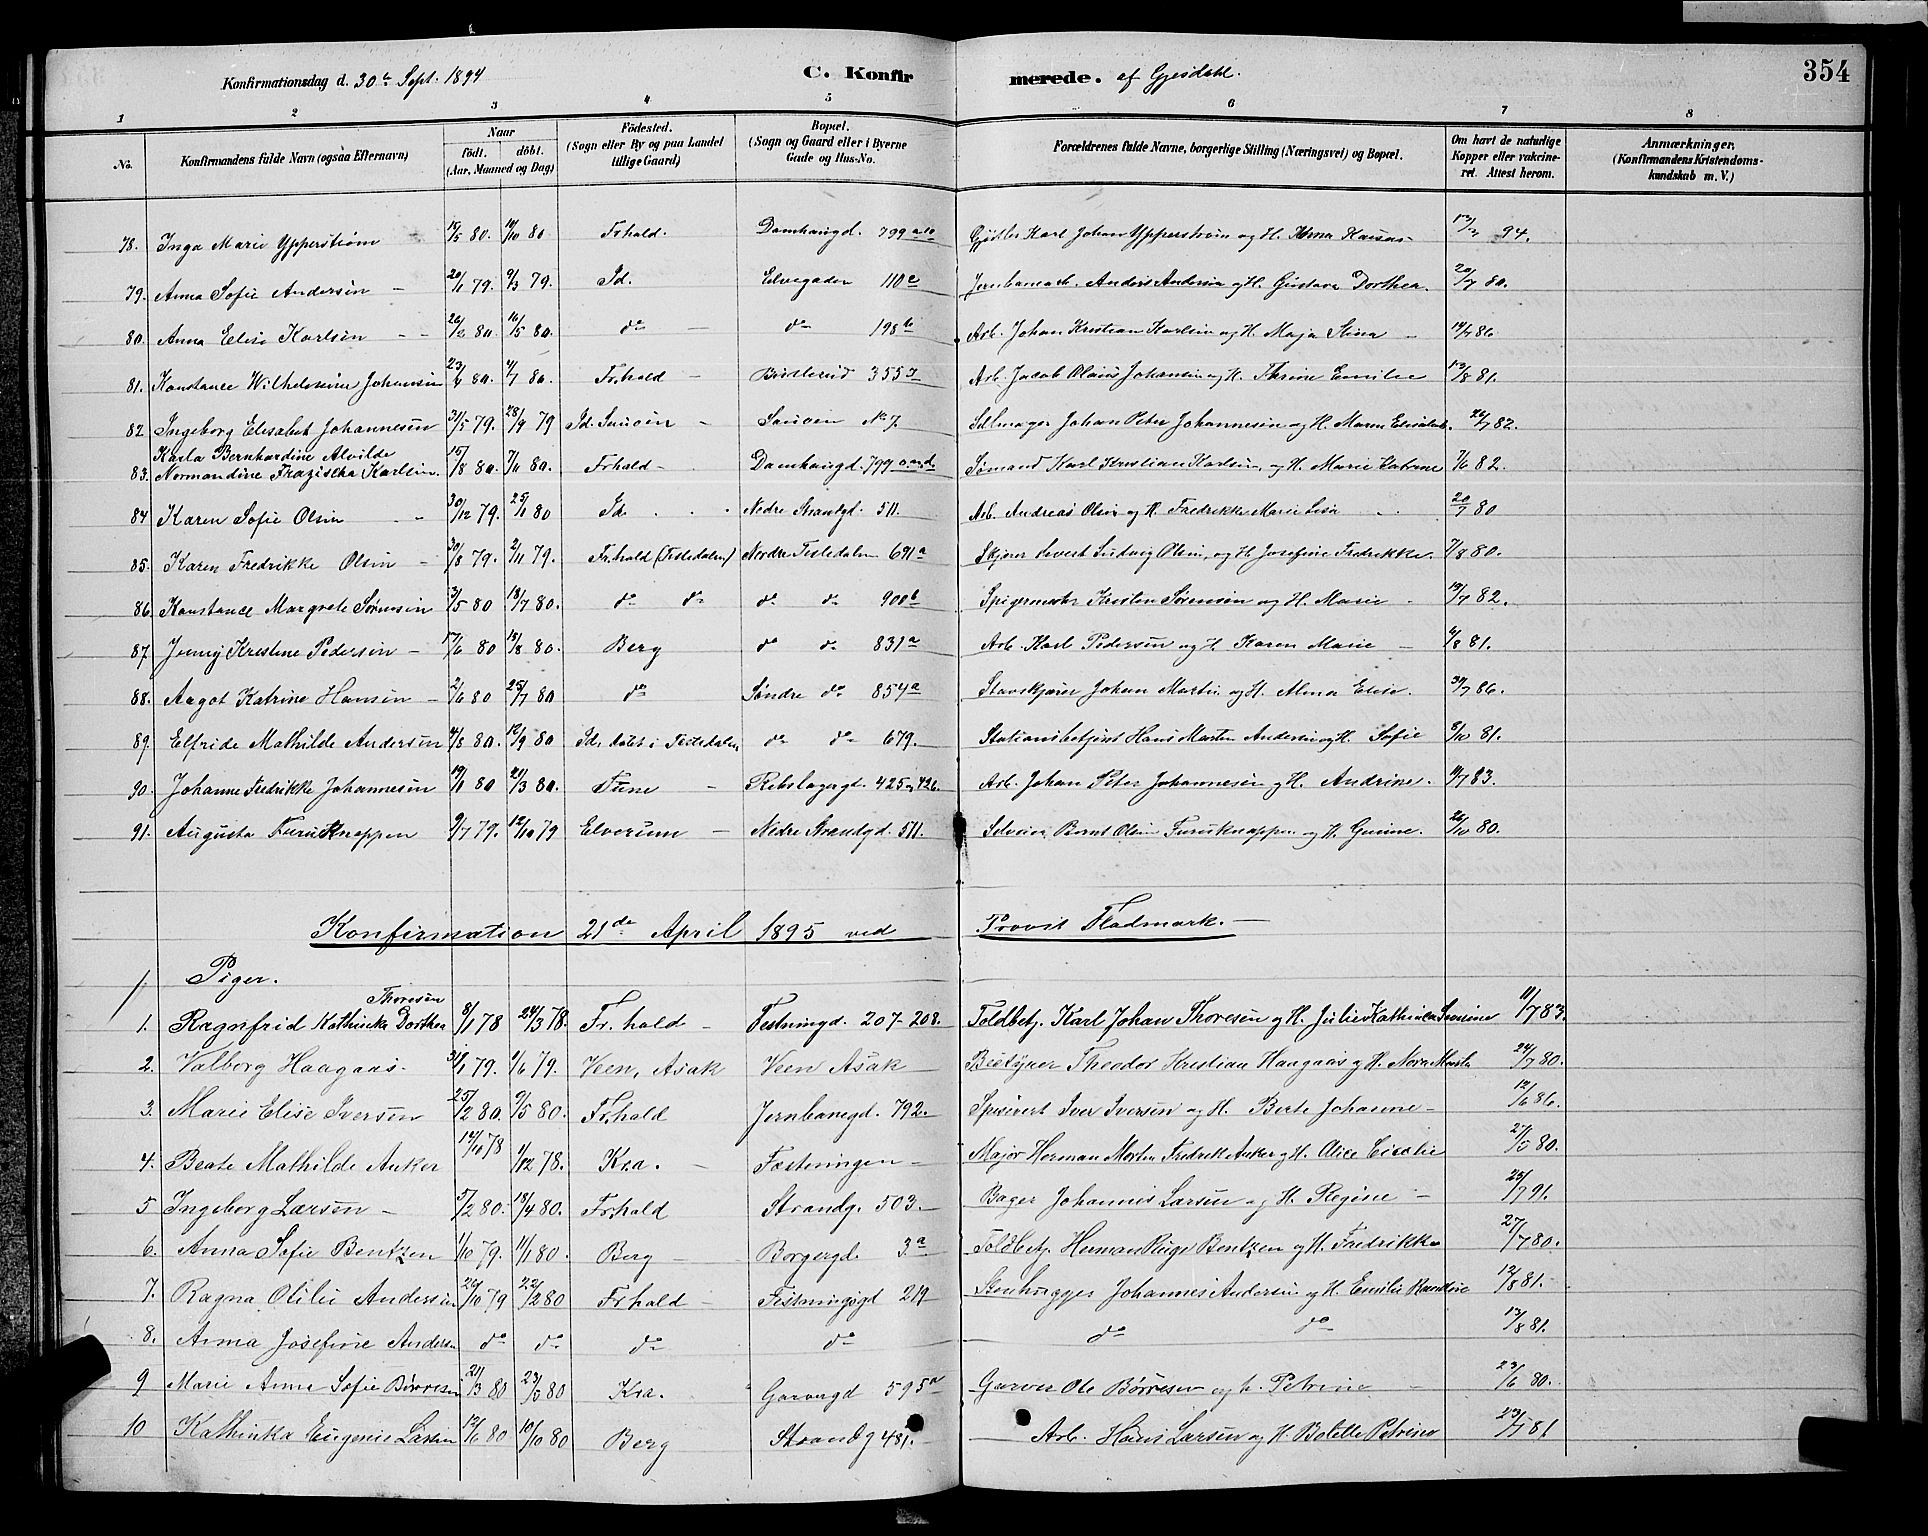 354
Konfirmationsdag d. 30te Sept. 1894 C. Konfirmerede. af Gjesdahl.
1 2 3 4 5 6 7 8
No. Konfirmandens fulde Navn (ogsaa Efternavn) Naar födt. döbt. (Aar, Maaned og Dag) Födested. (Sogn eller By og paa Landet tillige Gaard) Bopæl. (Sogn og Gaard eller i Byerne Gade og Hus-No. Forældrenes fulde Navne, borgerlige Stilling (Næringsvei) og Bopæl. Om havt de naturlige Kopper eller vakcineret. Attest herom. Anmærkninger. (Konfirmandens Kristendomskundskab m. V.)
78. Inga Marie Ypperstrøm 80. 80 Frhald. Damhaugd. 799 Karl Johan Ypperstrøm og H. Anna 94.
79. Anna Sofie Andersen 20/1 79. 9/3 79. Id. Elvegaden 110c Jernbanearb. Anders Andersen og H. Gustava Dorthea. 20/7 80.
80. Anna Elise Karlsen 26/2 80. 16/5 80. do do 198b Arb. Johan Kristian Karlsen og H. Maja Stina 86
81. Konstance Wilhelmine Johansen 23/6 80. 4/7 80. Fr.hald 355 Arb. Jacob Olaus Johansen og H. Thrine Emilie 13/8 81.
82. Ingeborg Elisabet Johannesen 31/5 79. 28/9 79 Id. Sauøen Sauøen No 7. Johan Peter Johannesen og H. Maren Elisabet 26/7 82.
83. Karla Bernhardine Alvilde Normandine Fraziska Karlsen. 15/8 80. 7/11 80. Frhald Damhaugd. 799 Sømand Karl Kristian Karlsen og H. Marie Katrine 7/6 82.
84 Karen Sofie Olsen 30/12 79. 25/1 80 Id. Nedre Strandgd. 511. Arb. Andreas Olsen og H. Fredrikke Marie Lisa 20/7 80
85. Karen Fredrikke Olsen 30/8 79. 2/11 79. Fr.hald (Tistedalen) Nordre Tistedalen 691a Skjærer Sivert Ludvig Olsen, og H. Josefine Fredrikke. 7/8 80.
86. Konstance Margrete Sørensen 3/5 80 18/7 80. do do do do 900b Kristen Sørensen og H. Marie 82.
87. Jenny Kristine Pedersen 17/6 80 15/8 80. Berg do do 831a Arb. Karl Pedersen og H Karen Marie 6/8 81.
88. Aagot Katrine Hansen 2/6 80 25/7 80 do Søndre do 854a Johan Martin og H. Alma Elise. 86.
89. Elfride Mathilde Andersen 4/8 80. 12/9 80 Id. døbt i Tistedalen do do 679. Stationsbetjent Hans Martin Andersen og H. Sofie 8/10 81.
90. Johanne Fredrikke Johannesen 19/1 80 21/3 80. Tune Rebslagergd. 425 og 426. Arb. Johan Peter Johannesen og H. Andrine. 83.
91. Augusta Furuknappen 9/7 79. 12/10 79 Elverum Nedre Strandgd. 511. Bernt Olsen Furuknappen og H. Gunine. 26/10 80.
Konfirmation 21de April 1895 ved Provst Fladmark.
Piger.
1. Ragnfrid Kathinka Dorthea Thoresen 8/1 78 24/3 78. Fr.hald Festningd. 207-208. Toldbetj. Karl Johan Thoresen og H. Julie Kathinka 11/7 83.
2. Valborg Haagaas. 31/1 79. 1/6 79. Veen, Asak Veen Asak Bestyrer Theodor Kristian Haagaas og H. Nora 24/7 80.
3. Marie Elise Iversen 25/2 80. 9/5 80. Frhald Jernbanegd. 792. Spisevert Iver Iversen og H. Berte Johanne 12/6 86.
4. Beate Mathilde Anker 78 1/12 78. Kra. Fæstningen Major Herman Morten Fredrik Anker og H. Alice 27/5 80.
5 Ingeborg Larsen 5/2 80. 18/4 80. Frhald Strandg. 503. Bager Johannes Larsen og H. Regine 25/7 91.
6. Anna Sofie Bentzen 1/10 79. 11/1 80. Berg Borgergd. 3a Toldbetj. Herman Ruge Bentzen og H. Fredrikke 27/7 80.
7. Ragna Otilie Andersen 26/10 79 22/2 80 Frhald Festningsgd 219 Stenhugger Johannes Andersen og H. Emilie 12/8 81.
8. Anna Josefine Andersen do do do do do do 13/8 81.
9 Marie Anna Sofie Børresen 21/3 80 80 Kra. Garvergd 595a Garver Ole Børresen og H. Petrine 23/6 80.
10 Kathinka Eugenie Larsen 12/6 80 10/10 80 Berg Strandg 481. Arb. Hans Larsen og H. Bolette Petrine 23/7 81